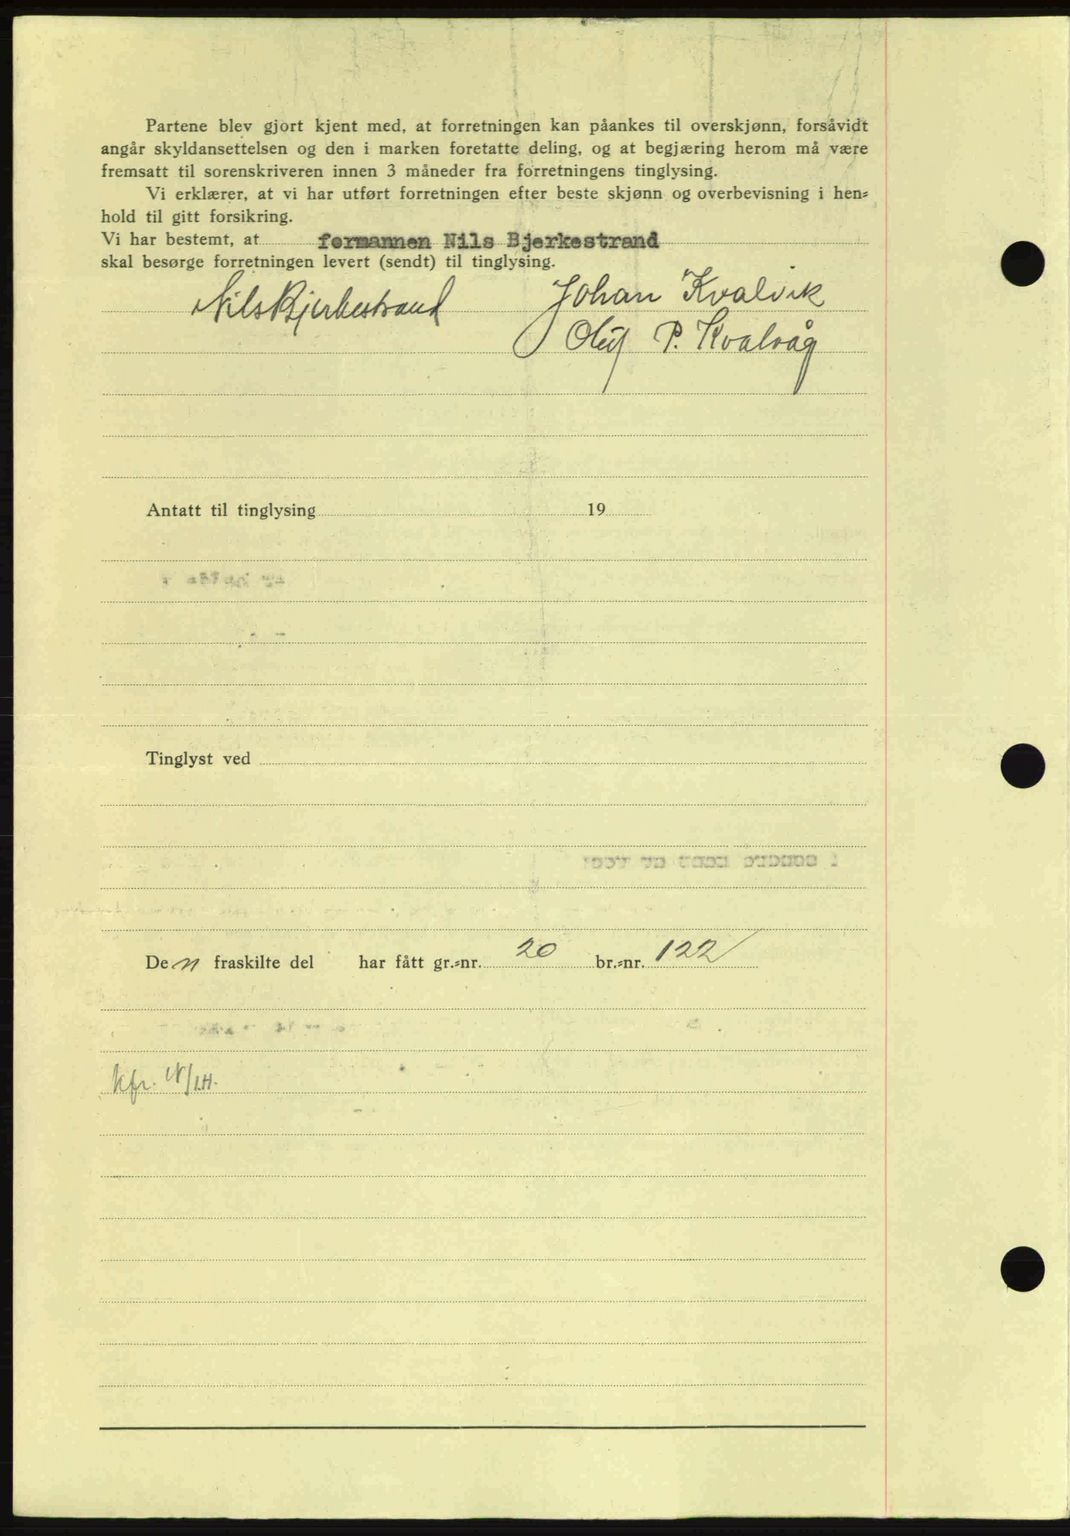 Partene blev gjort kjent med, at forretningen kan påankes til overskjønn, forsåvidt
angår skyldansettelsen og den i marken foretatte deling, og at begjæring herom må være
fremsatt til sorenskriveren innen 3 måneder fra forretningens tinglysing.
Vi erklærer, at vi har utført forretningen efter beste skjønn og overbevisning i hen-
hold til gitt forsikring.
Vi har bestemt, at formannen Nils Bjerkestrand
skal besørge forretningen levert (sendt) til tinglysing.
Nils Bjerkestrand Johan Kvalvik
Oluf P. Kvalvåg
Antatt til tinglysing 19
Tinglyst ved
Den fraskilte del har fått gr.-nr. 20 br.-nr. 122
kfr. N/LH.